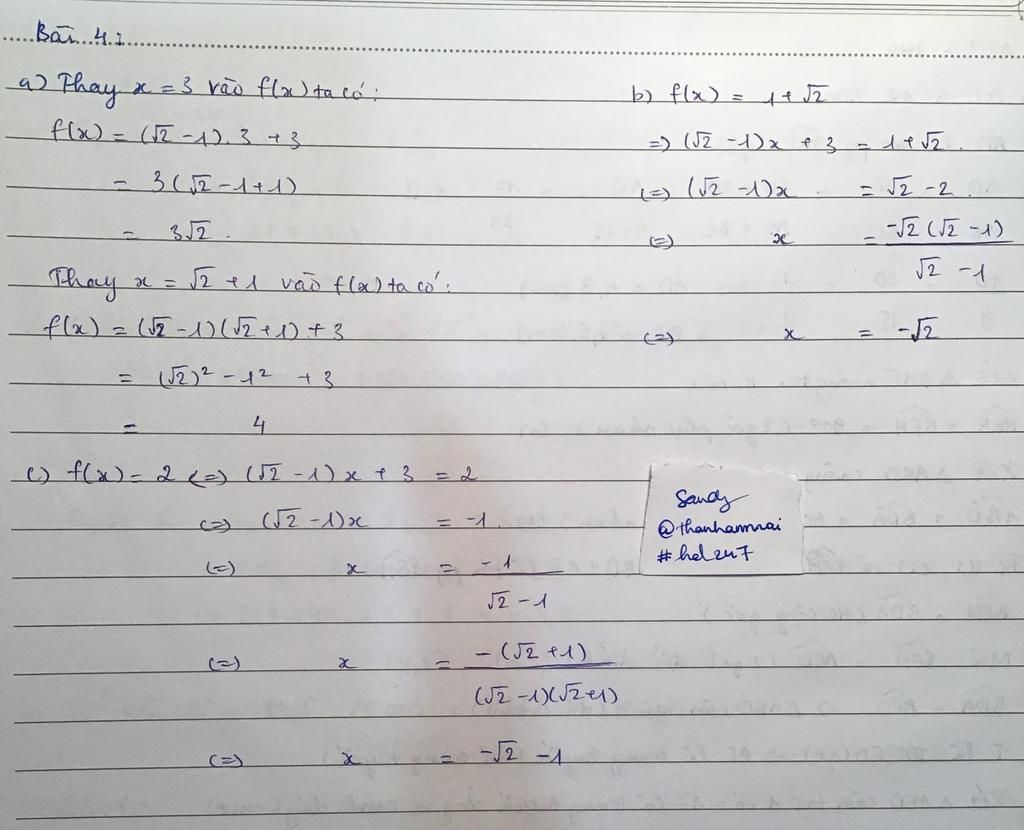 Bài 4.1
a) Thay x = 3 vào f(x) ta có:
f(x) = (√2 - 1). 3 + 3
= 3(√2 - 1 + 1)
= 3√2.
Thay x = √2 + 1 vào f(x) ta có:
f(x) = (√2 - 1)(√2 + 1) + 3
= (√2)² - 1² + 3
= 4
b) f(x) = 1 + √2
=> (√2 - 1)x + 3 = 1 + √2.
<=> (√2 - 1)x = √2 - 2.
<=> x = -√2 (√2 - 1)
√2 - 1
<=> x = -√2
c) f(x) = 2 <=> (√2 - 1)x + 3 = 2
<=> (√2 - 1)x = -1.
<=> x = -1
√2 - 1
<=> x = -(√2 + 1)
(√2 - 1)(√2 + 1)
<=> x = -√2 - 1
Sandy
@thanhamnai
#hel247